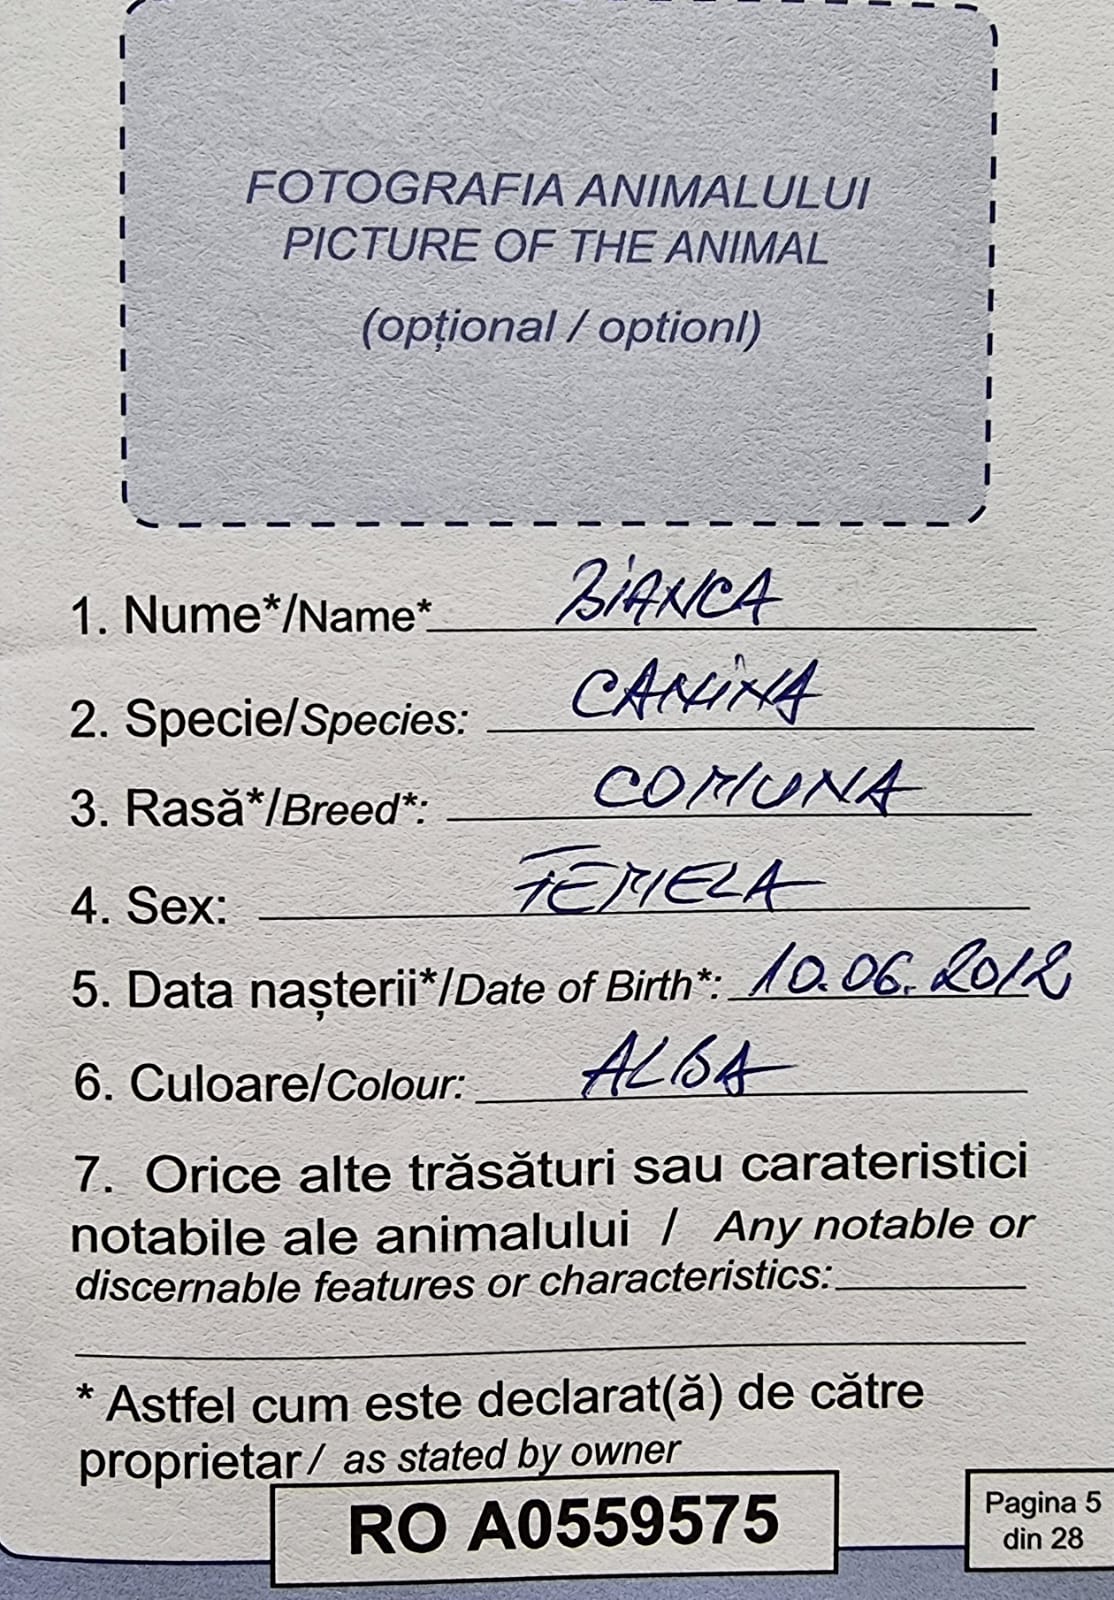 FOTOGRAFIA ANIMALULUI
PICTURE OF THE ANIMAL
(opțional / optionl)
1. Nume*/Name* BIANCA
2. Specie/Species: CANINA
3. Rasă*/Breed*: COMUNA
4. Sex: FEMELA
5. Data nașterii*/Date of Birth*: 10.06.2012
6. Culoare/Colour: ALBA
7. Orice alte trăsături sau carateristici
notabile ale animalului / Any notable or
discernable features or characteristics:
* Astfel cum este declarat(ă) de către
proprietar/ as stated by owner
RO A0559575
Pagina 5
din 28